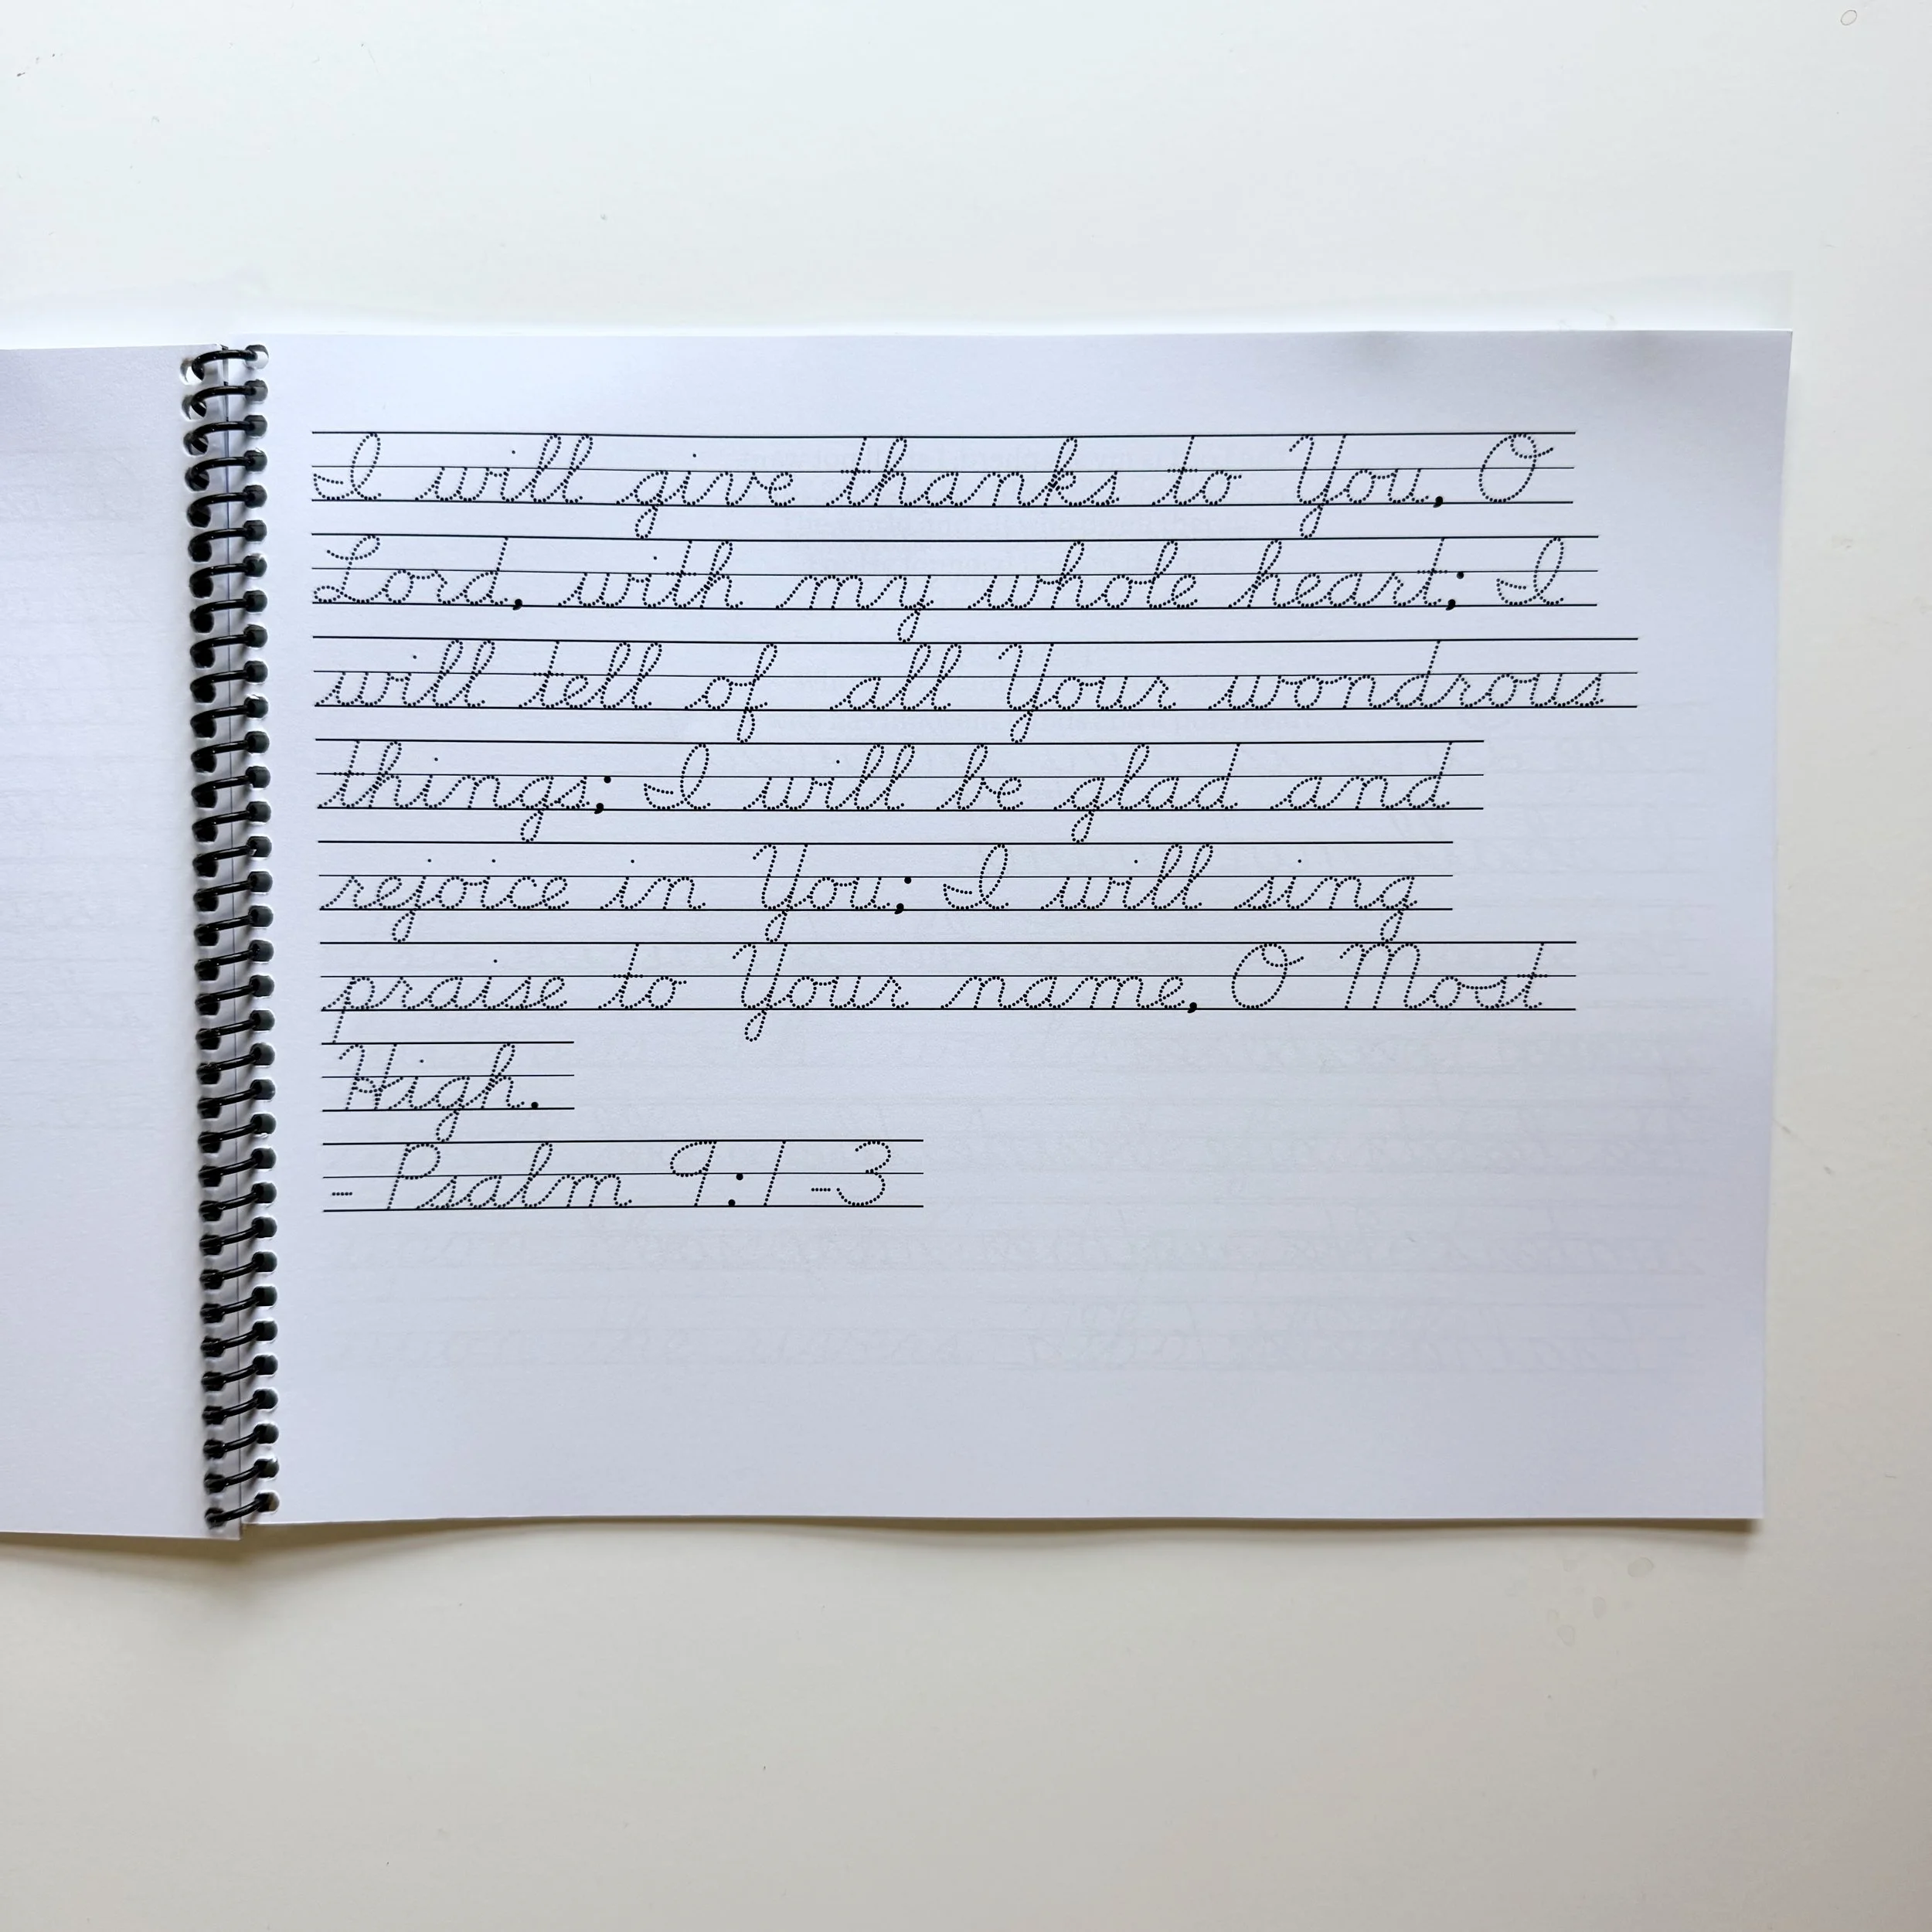 I will give thanks to You, O
Lord, with my whole heart; I
will tell of all Your wondrous
things; I will be glad and
rejoice in You; I will sing
praise to Your name, O Most
High.
- Psalm 9:1-3